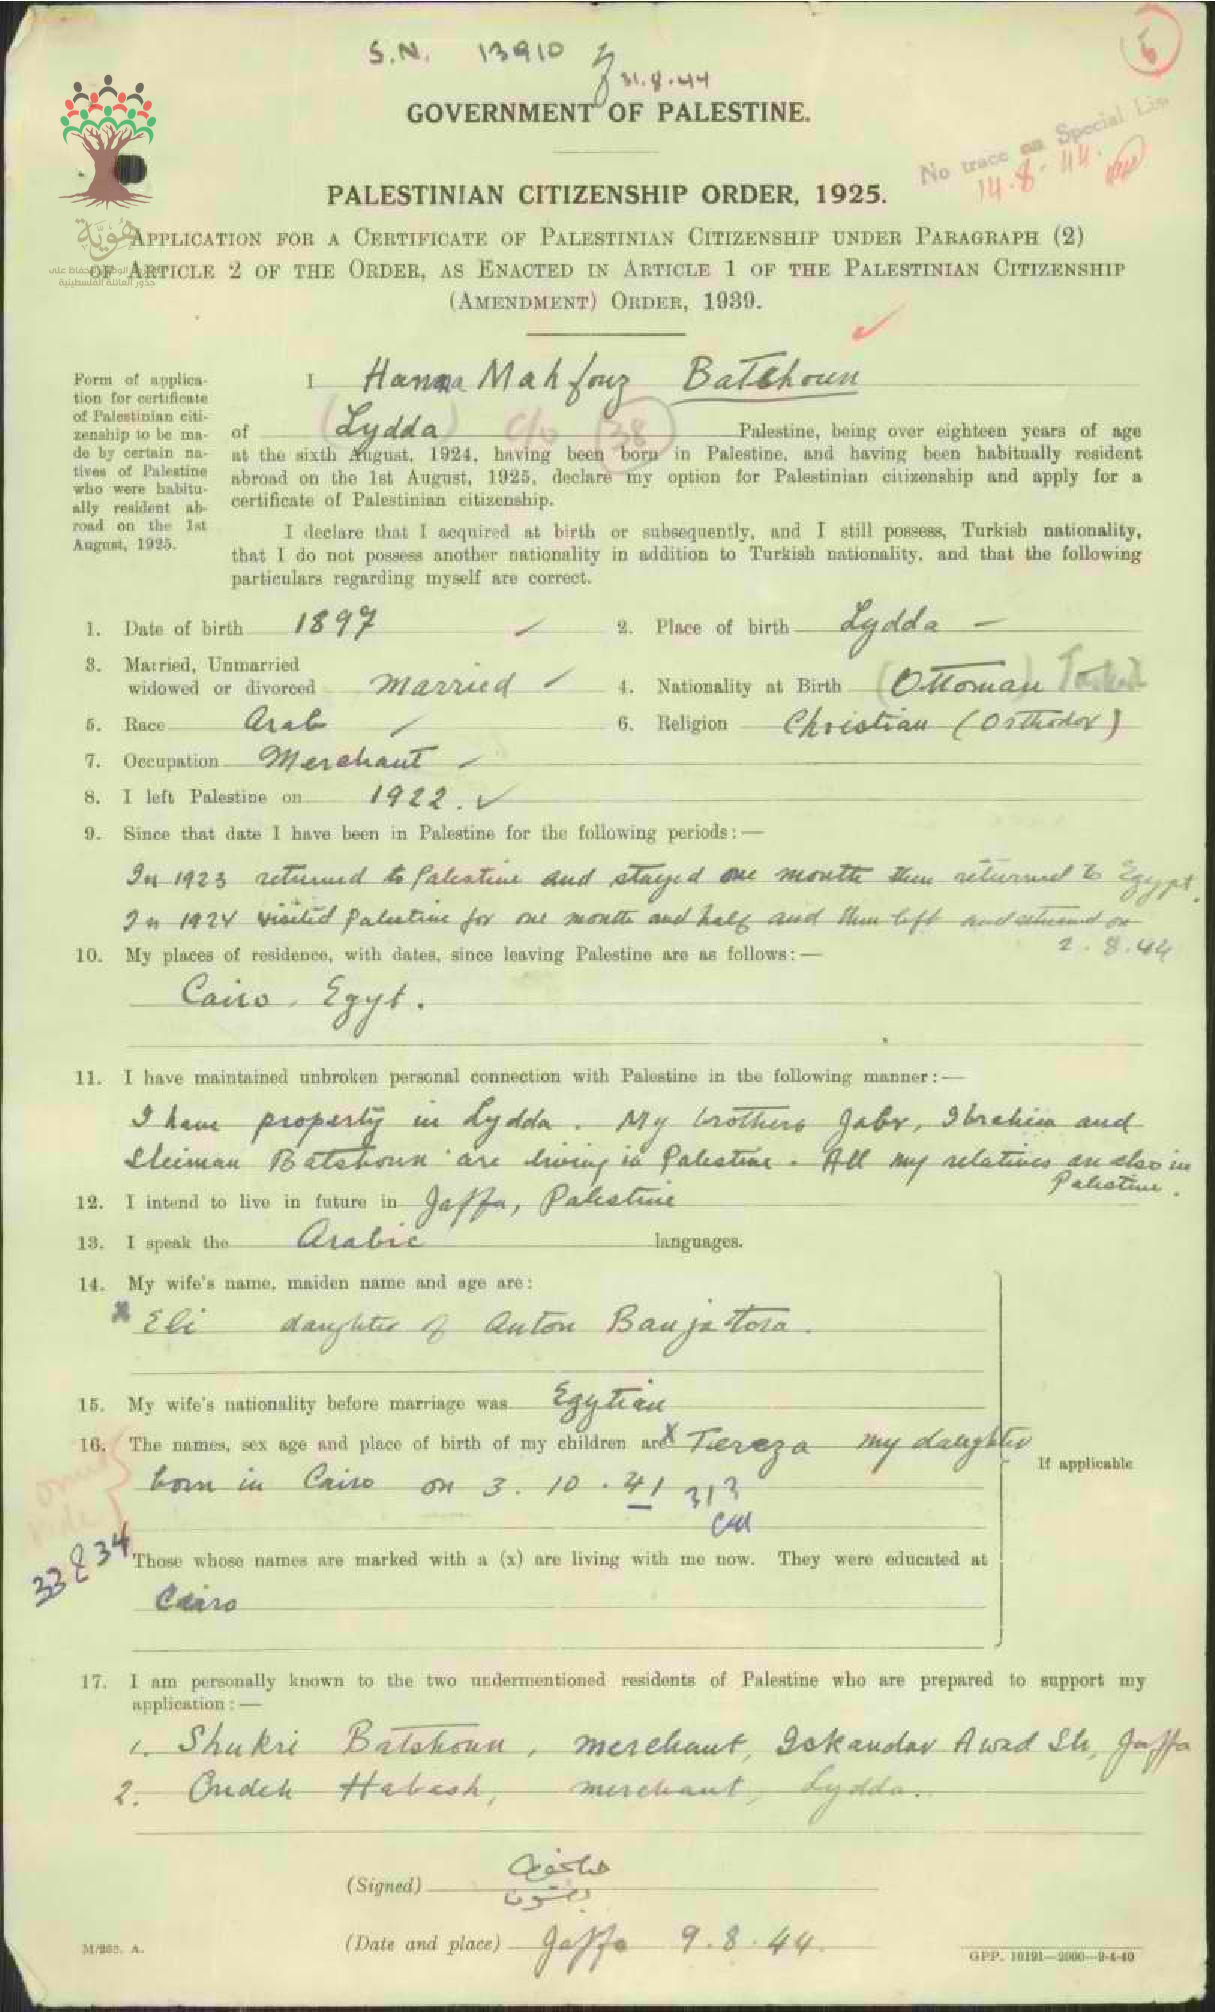 S.N. 13910
31.8.44
6
GOVERNMENT OF PALESTINE.
No trace on Special List
14.8.44.
PALESTINIAN CITIZENSHIP ORDER, 1925.
هُوِيَّة
جذور العائلة الفلسطينية
APPLICATION FOR A CERTIFICATE OF PALESTINIAN CITIZENSHIP UNDER PARAGRAPH (2)
OF ARTICLE 2 OF THE ORDER, AS ENACTED IN ARTICLE 1 OF THE PALESTINIAN CITIZENSHIP
(AMENDMENT) ORDER, 1939.
Form of applica-
tion for certificate
of Palestinian citi-
zenship to be ma-
de by certain na-
tives of Palestine
who were habitu-
ally resident ab-
road on the 1st
August, 1925.
I Hanna Mahfouz Batshoun
of (Lydda) c/o 38 Palestine, being over eighteen years of age
at the sixth August, 1924, having been born in Palestine, and having been habitually resident
abroad on the 1st August, 1925, declare my option for Palestinian citizenship and apply for a
certificate of Palestinian citizenship.
I declare that I acquired at birth or subsequently, and I still possess, Turkish nationality,
that I do not possess another nationality in addition to Turkish nationality, and that the following
particulars regarding myself are correct.
1. Date of birth 1897 2. Place of birth Lydda
3. Married, Unmarried
widowed or divorced Married 4. Nationality at Birth (Ottoman)
5. Race Arab 6. Religion Christian (Orthodox)
7. Occupation Merchant
8. I left Palestine on 1922.
9. Since that date I have been in Palestine for the following periods:—
In 1923 returned to Palestine and stayed one month then returned to Egypt.
In 1924 visited Palestine for one month and half and then left and returned on
2.8.44
10. My places of residence, with dates, since leaving Palestine are as follows:—
Cairo, Egyt.
11. I have maintained unbroken personal connection with Palestine in the following manner:—
I have property in Lydda. My brothers Jabr, Ibrahim and
Sleiman Batshoun are living in Palestine. All my relatives are also in
Palestine.
12. I intend to live in future in Jaffa, Palestine
13. I speak the Arabic languages.
14. My wife's name, maiden name and age are:
x Eli daughter of Anton Banjatora.
15. My wife's nationality before marriage was Egytian
16. The names, sex age and place of birth of my children are x Tereza my daughter
born in Cairo on 3.10.41 313
If applicable
33 & 34
Those whose names are marked with a (x) are living with me now. They were educated at
Cairo
17. I am personally known to the two undermentioned residents of Palestine who are prepared to support my
application:—
1. Shukri Batshoun, merchant, Iskandar Awad St, Jaffa
2. Oudeh Habash, merchant, Lydda.
(Signed)
(Date and place) Jaffa 9.8.44.
M/265. A.
GPP. 10191—2000—9-4-40